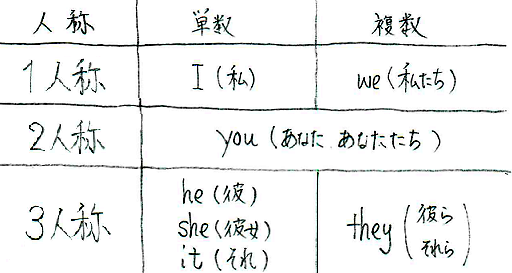 人称 単数 複数
1人称 I (私) we (私たち)
2人称 you (あなた あなたたち)
3人称 he (彼) she (彼女) it (それ) they (彼ら それら)